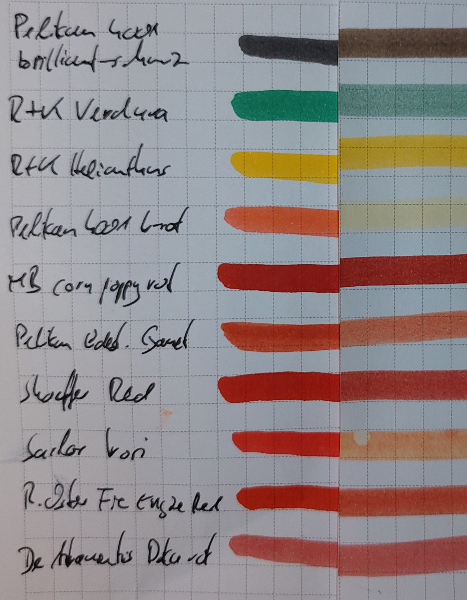 Pelikan 4001
brilliant-schwarz
R+K Verdura
R+K Helianthus
Pelikan 4001 b-rot
MB corn poppy red
Pelikan Edel. Garnet
Sheaffer Red
Sailor Irori
R. Oster Fire Engine Red
De Atramentis